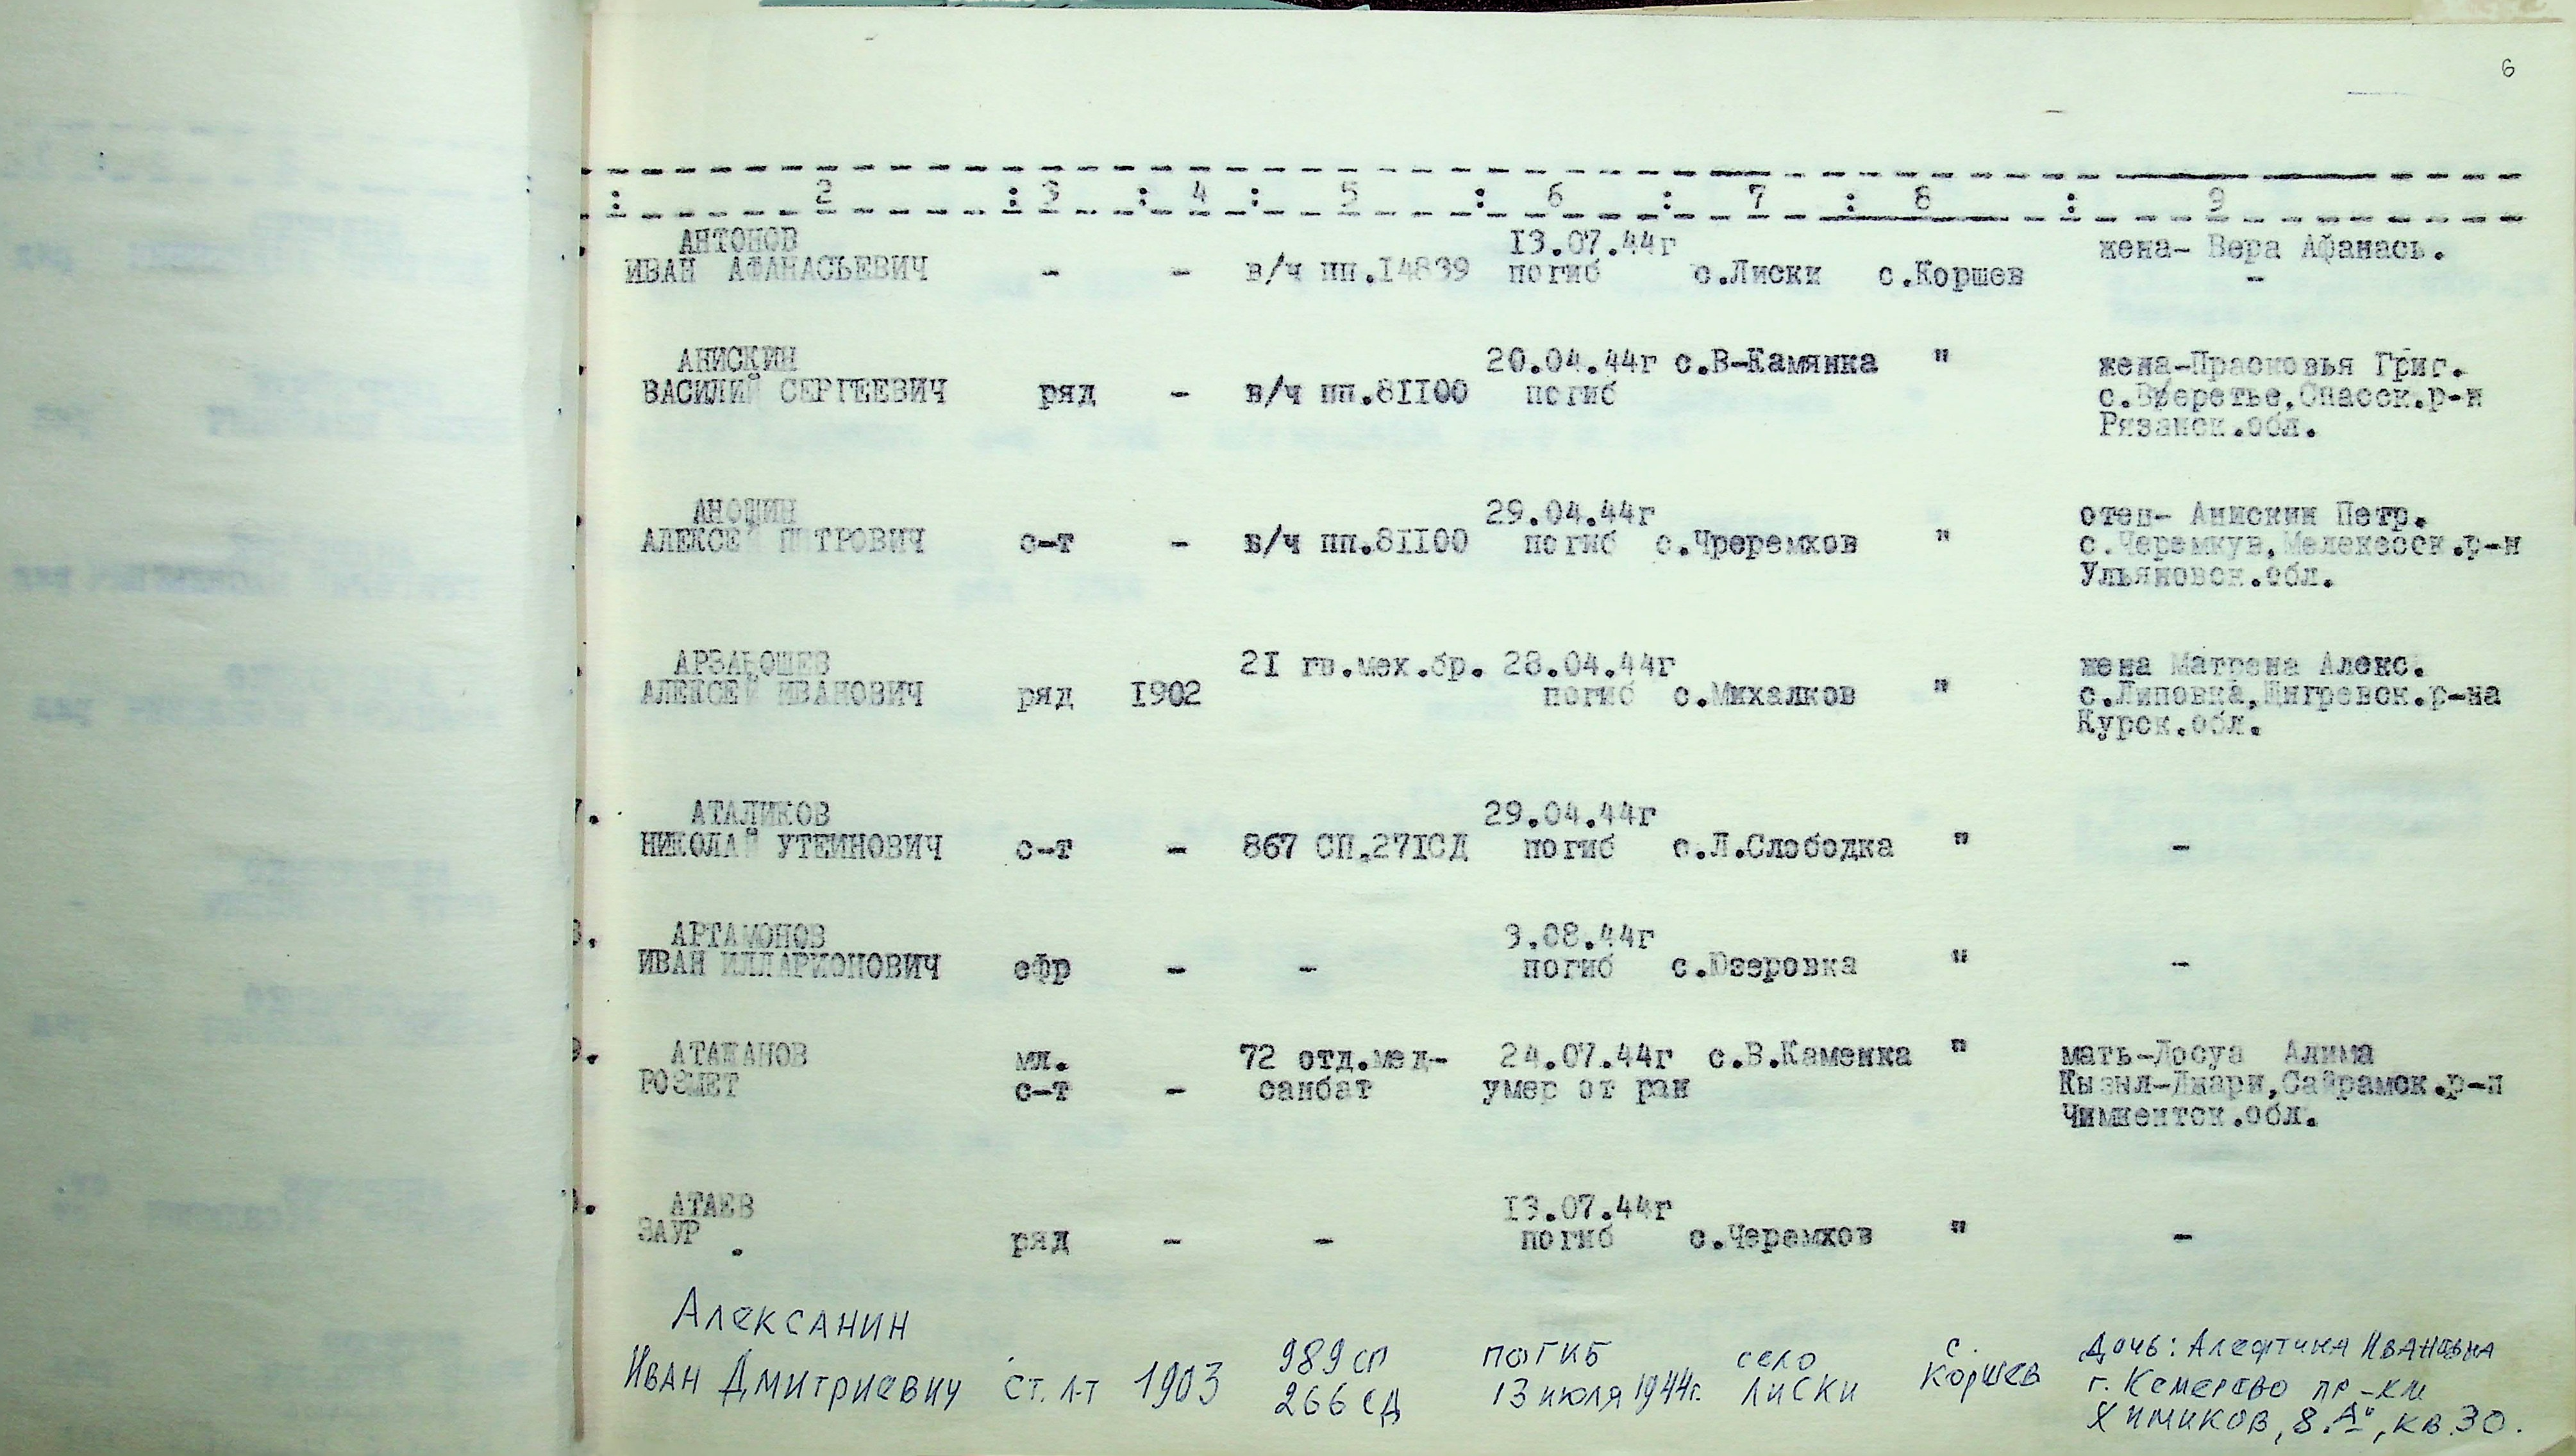 6
: 2 : 3 : 4 : 5 : 6 : 7 : 8 : 9
АНТОНОВ 13.07.44г жена- Вера Афанась.
ИВАН АФАНАСЬЕВИЧ - - в/ч пп.14839 погиб с.Лиски с.Коршев -
АНИСКИН 20.04.44г с.В-Камянка " жена-Прасковья Григ.
ВАСИЛИЙ СЕРГЕЕВИЧ ряд - в/ч пп.81100 погиб с.Вжеретье,Спасск.р-н
Рязанск.обл.
АНОШИН 29.04.44г отец- Анискин Петр.
АЛЕКСЕЙ ПЕТРОВИЧ с-т - в/ч пп.81100 погиб с.Чреремхов " с.Черемкув,Мелекесск.р-н
Ульяновск.обл.
21 гв.мех.бр. 28.04.44г жена Матрена Алекс.
АЛЕКСЕЙ ИВАНОВИЧ ряд 1902 погиб с.Михалков " с.Липовка,Щигревск.р-на
Курск.обл.
7. АТАЛИКОВ 29.04.44г
НИКОЛАЙ УТЕИНОВИЧ с-т - 867 СП,271СД погиб с.Л.Слободка " -
8. АРТАМОНОВ 3.08.44г
ИВАН ИЛЛАРИОНОВИЧ ефр - - погиб с.Юзеровка " -
9. АТАШАНОВ мл. 72 отд.мед- 24.07.44г с.В.Каменка " мать-Лосуа Алима
РОЗМЕТ с-т - санбат умер от ран Кызыл-Джари,Сайрамск.р-н
Чимкентск.обл.
АТАЕВ 13.07.44г
ЗАУР . ряд - - погиб с.Черемхов " -
Алексанин
Иван Дмитриевич ст. л-т 1903 989 сп погиб село с. Дочь: Алефтина Ивановна
266 сд 13 июля 1944г. Лиски Коршев г. Кемерово пр-км
Химиков, 8."А", кв.30.